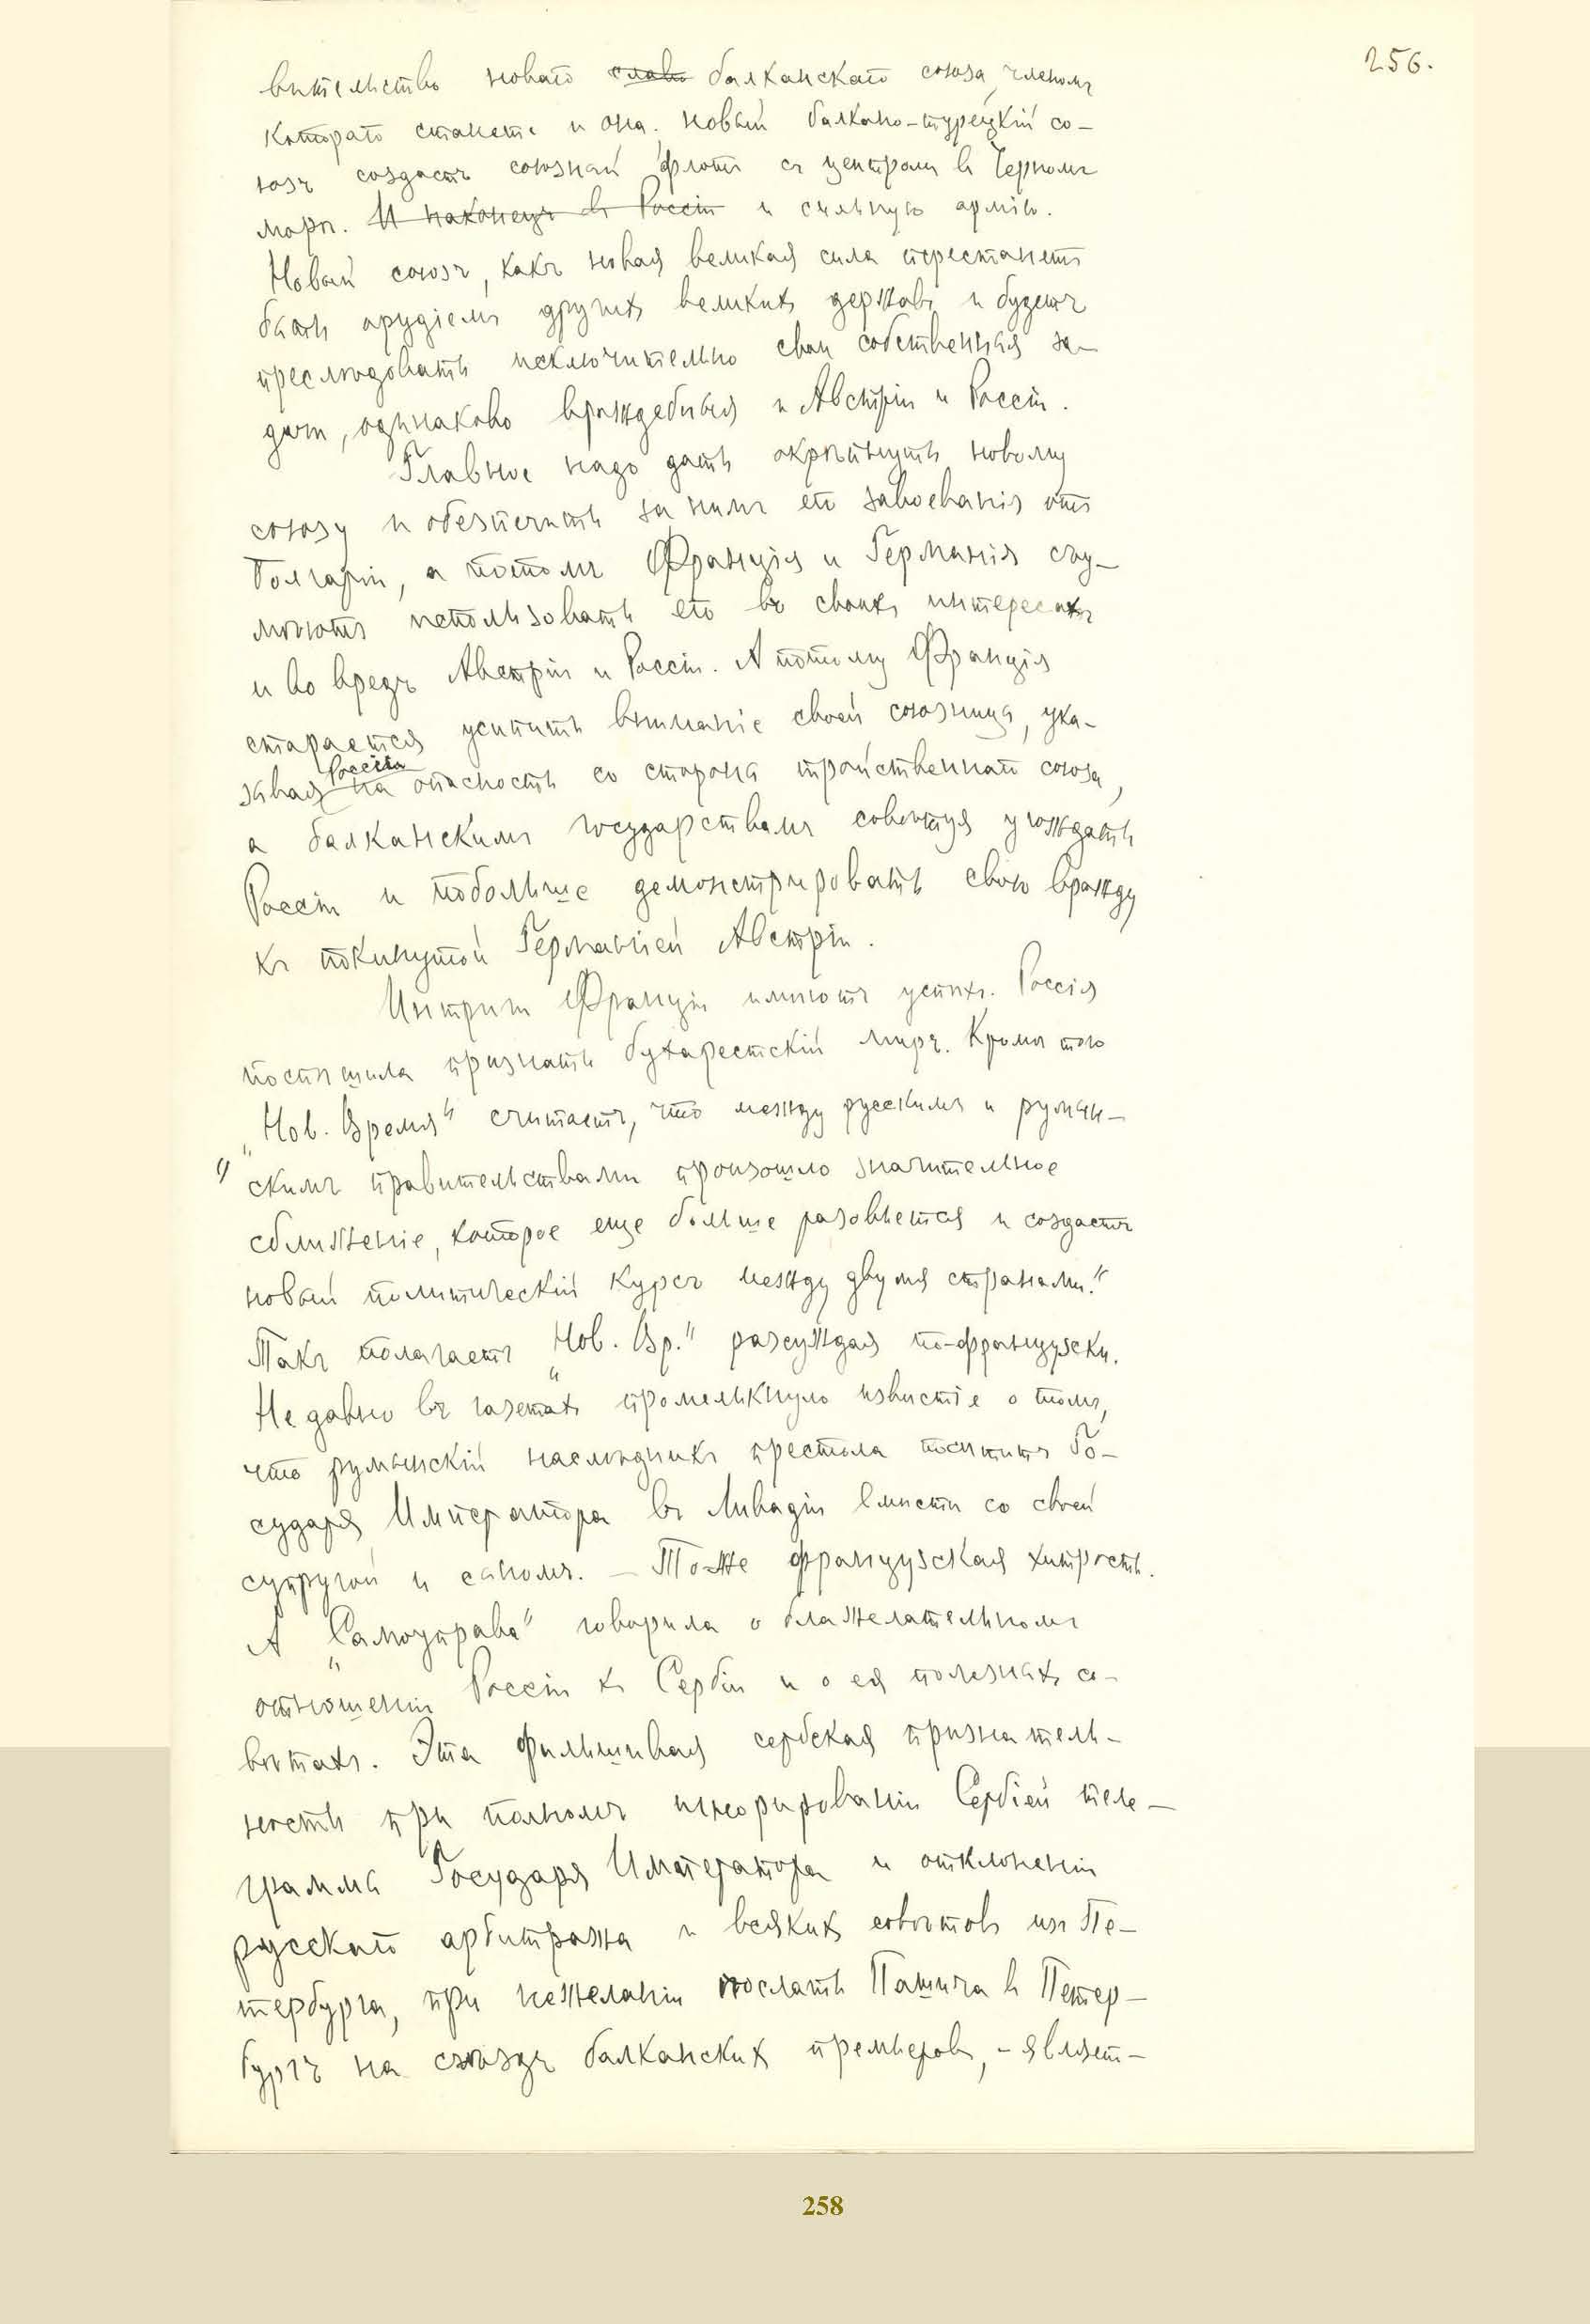 256.
вительство новаго ~~славо~~ балканскаго союза, членомъ
котораго станетъ и она. Новый балкано-турецкій со-
юзъ создастъ союзный флотъ съ центромъ въ Черномъ
морѣ. ~~И наконецъ въ Россіи~~ и сильную армію.
Новый союзъ, какъ новая великая сила перестанетъ
быть орудіемъ другихъ великихъ державъ и будетъ
преслѣдовать исключительно свои собственныя за-
дачи, одинаково враждебныя и Австріи и Россіи.
Главное надо дать окрѣпнуть новому
союзу и обезпечить за нимъ его завоеванія отъ
Болгаріи, а потомъ Франція и Германія съу-
мѣютъ использовать его въ своихъ интересахъ
и во вредъ Австріи и Россіи. А потому Франція
старается усыпить вниманіе своей союзницы, ука-
Россіи
зывая ~~на~~ опасность со стороны тройственнаго союза,
а балканскимъ государствамъ совѣтуя угождать
Россіи и побольше демонстрировать свою вражду
къ покинутой Германіей Австріи.
Интриги Франціи имѣютъ успѣхъ. Россія
поспѣшила признать бухарестскій миръ. Кромѣ того
„Нов. Время" считаетъ, что между русскимъ и румын-
"скимъ правительствами произошло значительное
сближеніе, которое еще больше разовьется и создастъ
новый политическій курсъ между двумя странами."
Такъ полагаетъ „Нов. Вр." разсуждая по-французски.
Недавно въ газетахъ промелькнуло извѣстіе о томъ,
что румынскій наслѣдникъ престола посѣтитъ Го-
сударя Императора въ Ливадіи вмѣстѣ со своей
супругой и сыномъ. – Тоже французская хитрость.
А „Самоуправа" говорила о благожелательномъ
отношеніи Россіи къ Сербіи и о ея полезныхъ со-
вѣтахъ. Эта фальшивая сербская признатель-
ность при полномъ игнорированіи Сербіей теле-
граммы Государя Императора и отклоненіи
русскаго арбитража и всякихъ совѣтовъ изъ Пе-
тербурга, при нежеланіи послать Пашича въ Петер-
бургъ на съѣздъ балканскихъ премьеровъ, – являет-
258